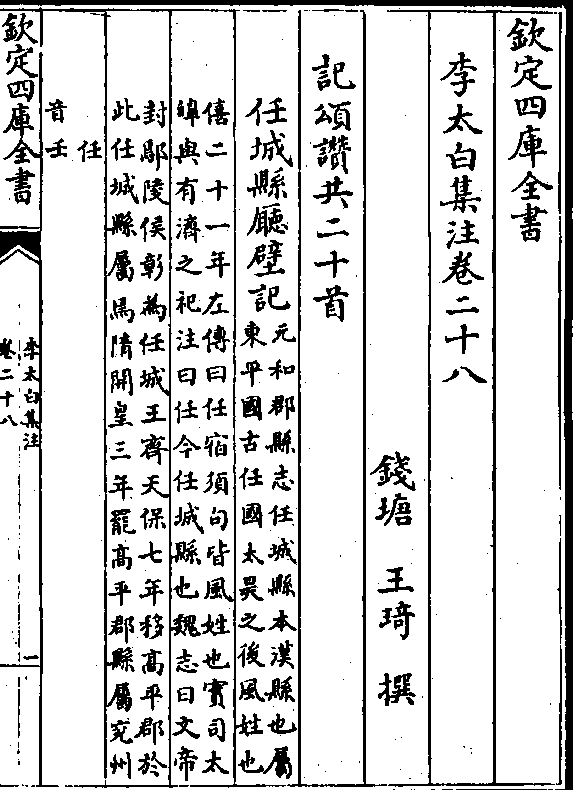 欽定四庫全書
李太白集注卷二十八
錢塘 王琦 撰
記頌讚共二十首
任城縣㕔壁記元和郡縣志任城縣本漢縣也屬
東平國古任國太昊之後風姓也
僖二十一年左傳曰任宿須句皆風姓也實司太
皡與有濟之祀注曰任今任城縣也魏志曰文帝
封鄢陵侯彰為任城王齊天保七年移髙平郡於
此任城縣屬焉隋開皇三年罷髙平郡縣屬兖州
任
音壬
欽定四庫全書
李太白集注
卷二十八
一